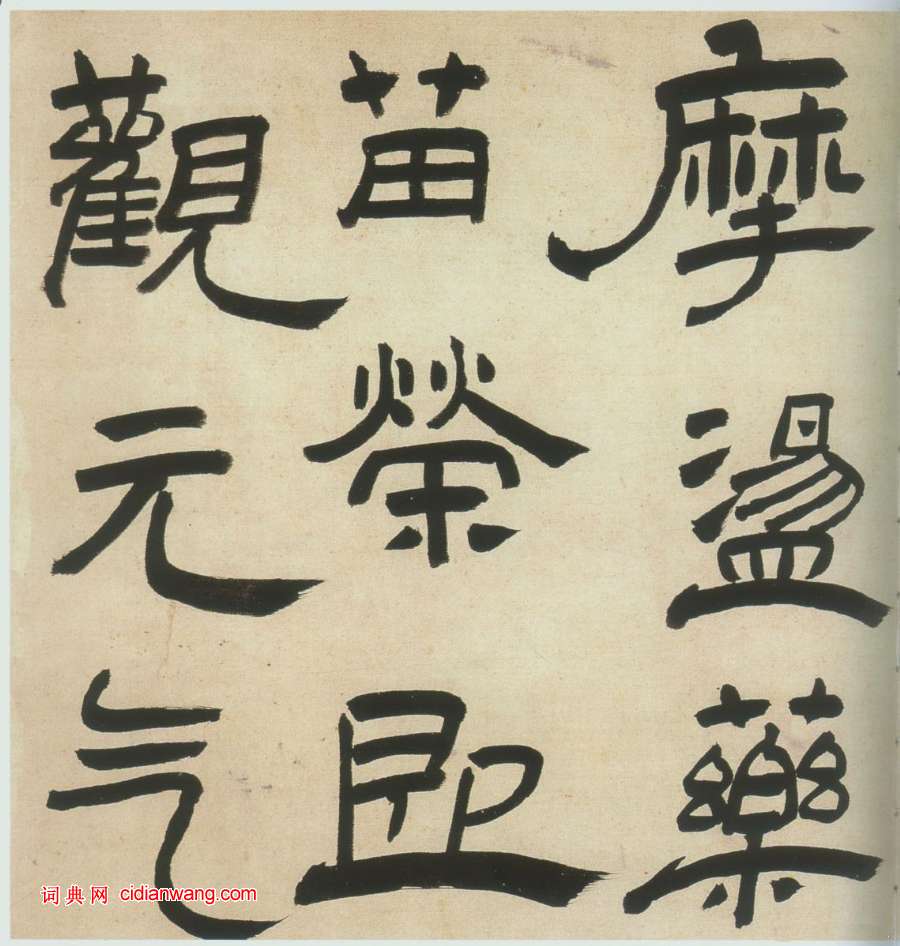 摩盪藥
苗榮即
觀元气
词典网 cidianwang.com